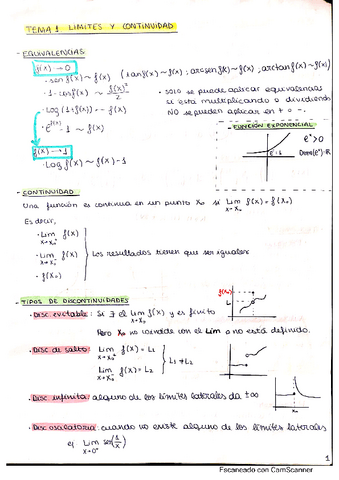 TEMA 1 LIMITES Y CONTINUIDAD
- EQUIVALENCIAS
f(x) → 0
· sen f(x) ~ f(x) (tan f(x) ~ f(x) ; arcsen f(x) ~ f(x), arctan f(x) ~ f(x))
· 1 - cos f(x) ~ f(x)²/2
· Log (1+f(x)) ~ f(x)
· e^f(x) - 1 ~ f(x)
f(x) → 1
· Log f(x) ~ f(x) - 1
· Solo se puede aplicar equivalencias
si esta multiplicando o dividiendo
NO se pueden aplicar en + o -.
- FUNCIÓN EXPONENCIAL
e^x > 0
Dom(e^x) = ℝ
- CONTINUIDAD
Una función es continua en un punto x₀ si Lim x→x₀ f(x) = f(x₀)
Es decir,
· Lim x→x₀⁺ f(x)
· Lim x→x₀⁻ f(x)
· f(x₀)
Los resultados tienen que ser iguales
- TIPOS DE DISCONTINUIDADES
· Disc evitable: Si ∃ el Lim x→x₀ f(x) y es finito
Pero x₀ no coincide con el Lim o no está definido.
f(x₀)
L
x₀
· Disc de salto: Lim x→x₀⁺ f(x) = L₁
Lim x→x₀⁻ f(x) = L₂
L₁ ≠ L₂
· Disc infinita: alguno de los límites laterales da ±∞
x₀
· Disc oscilatoria: cuando no existe alguno de los límites laterales
ej Lim x→0⁺ sen(1/x)
1
Escaneado con CamScanner